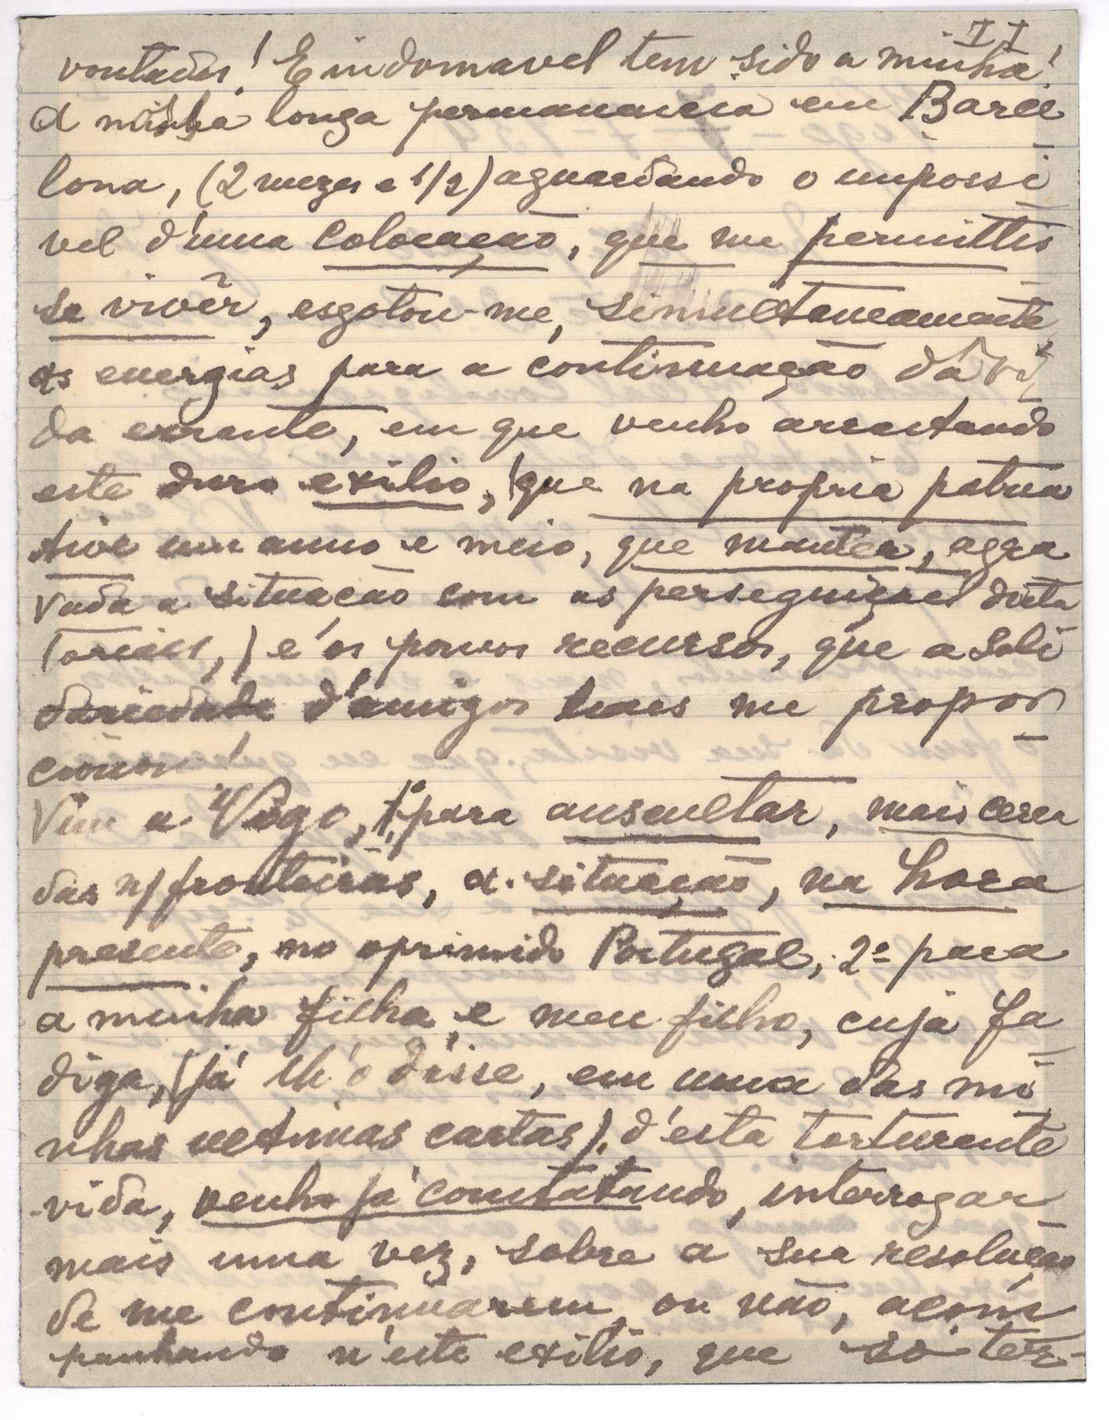 II
vontades! E indomavel tem sido a minha!
A minha longa permanencia em Barce
lona, (2 mezes e 1/2) aguardando o impossi
vel d'uma colocação, que me permittis
se vivêr, esgotou-me, simultaneamente
as energias para a continuação da vi
da errante, em que venho arrastando
este duro exilio, (que na propria patria
tive um anno e meio, que mantem, aggra
vada a situação com as perseguições dicta
toriaes,) e os poucos recursos, que a soli
dariedade d'amigos leaes me propor
cionou!
Vim a Vigo, 1º para auscultar, mais cerca
das n/ fronteiras, a situação, na hora
presente, no oprimido Portugal, 2º para
a minha filha e meu filho, cuja fa
diga, (já lh'o disse, em uma das mi
nhas ultimas cartas), d'esta torturante
vida, venho já constatando, interrogar
mais uma vez, sobre a sua resolução
de me continuarem, ou não, acom
panhando n'este exilio, que só ter-